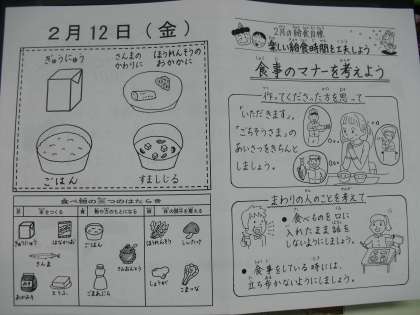 2月12日(金)
ぎゅうにゅう
さんまの
かわりに
ほうれんそうの
おかかに
ごはん
すましじる
食べ物の三つのはたらき
ぎゅうにゅう
はなかつお
さんま
とうふ
ごはん
ごまあぶら
ほうれんそう
しいたけ
しょうが
2月の給食目標
楽しい給食時間を工夫しよう
食事のマナーを考えよう
作ってくださった方を思って
「いただきます」。
「ごちそうさま」の
あいさつをきちんと
しましょう。
まわりの人のことを考えて
● 食べものを口に
入れたまま話を
しないようにしましょう。
● 食事をしている時には、
立ち歩かないようにしましょう。